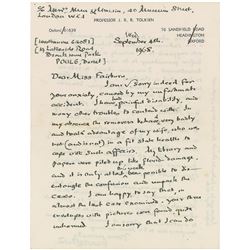 c/o Messrs Allen & Unwin, 40 Museum Street,
London WC1
PROFESSOR J. R. R. TOLKIEN
Oxford 61639
76 SANDFIELD ROAD
HEADINGTON
OXFORD
Branksome Park
POOLE, Dorset
Wed
September 4th.
1968.
Dear Miss Fairburn,
I am sorry indeed for
your anxiety, caused by my unfortunate
accident. I have, painful disability, and
many other things to contend with. In my
absence the removers behaved very badly
and took advantage of my wife, who was
not (and is not) in a fit state of health to
cope with such affairs. My library and
papers were piled up, like flood damage,
and it is only at last been possible to dis-
entangle the confusion and unpack the
cases. I am happy to say that, in
almost the last case examined, your three
envelopes with pictures were found, quite
unharmed. I am sorry that I can do